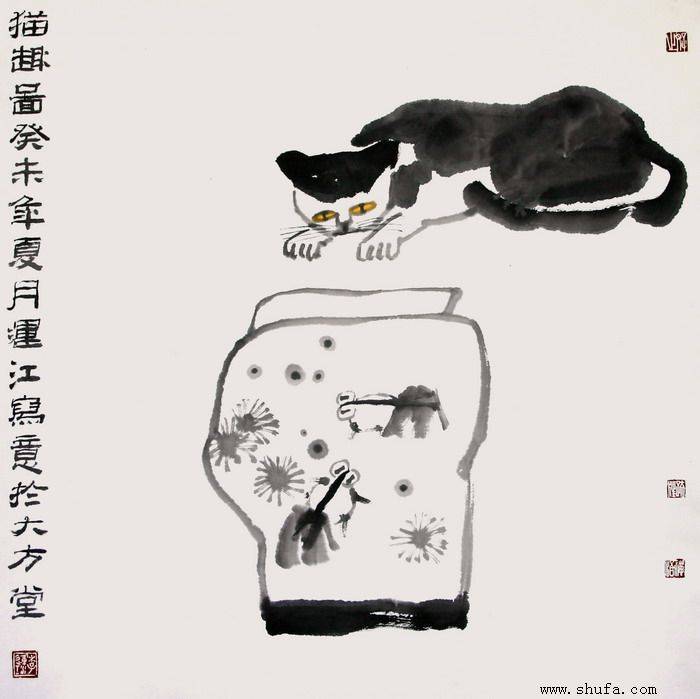 猫趣啚癸未年夏月運江寫意於大方堂
www.shufa.com